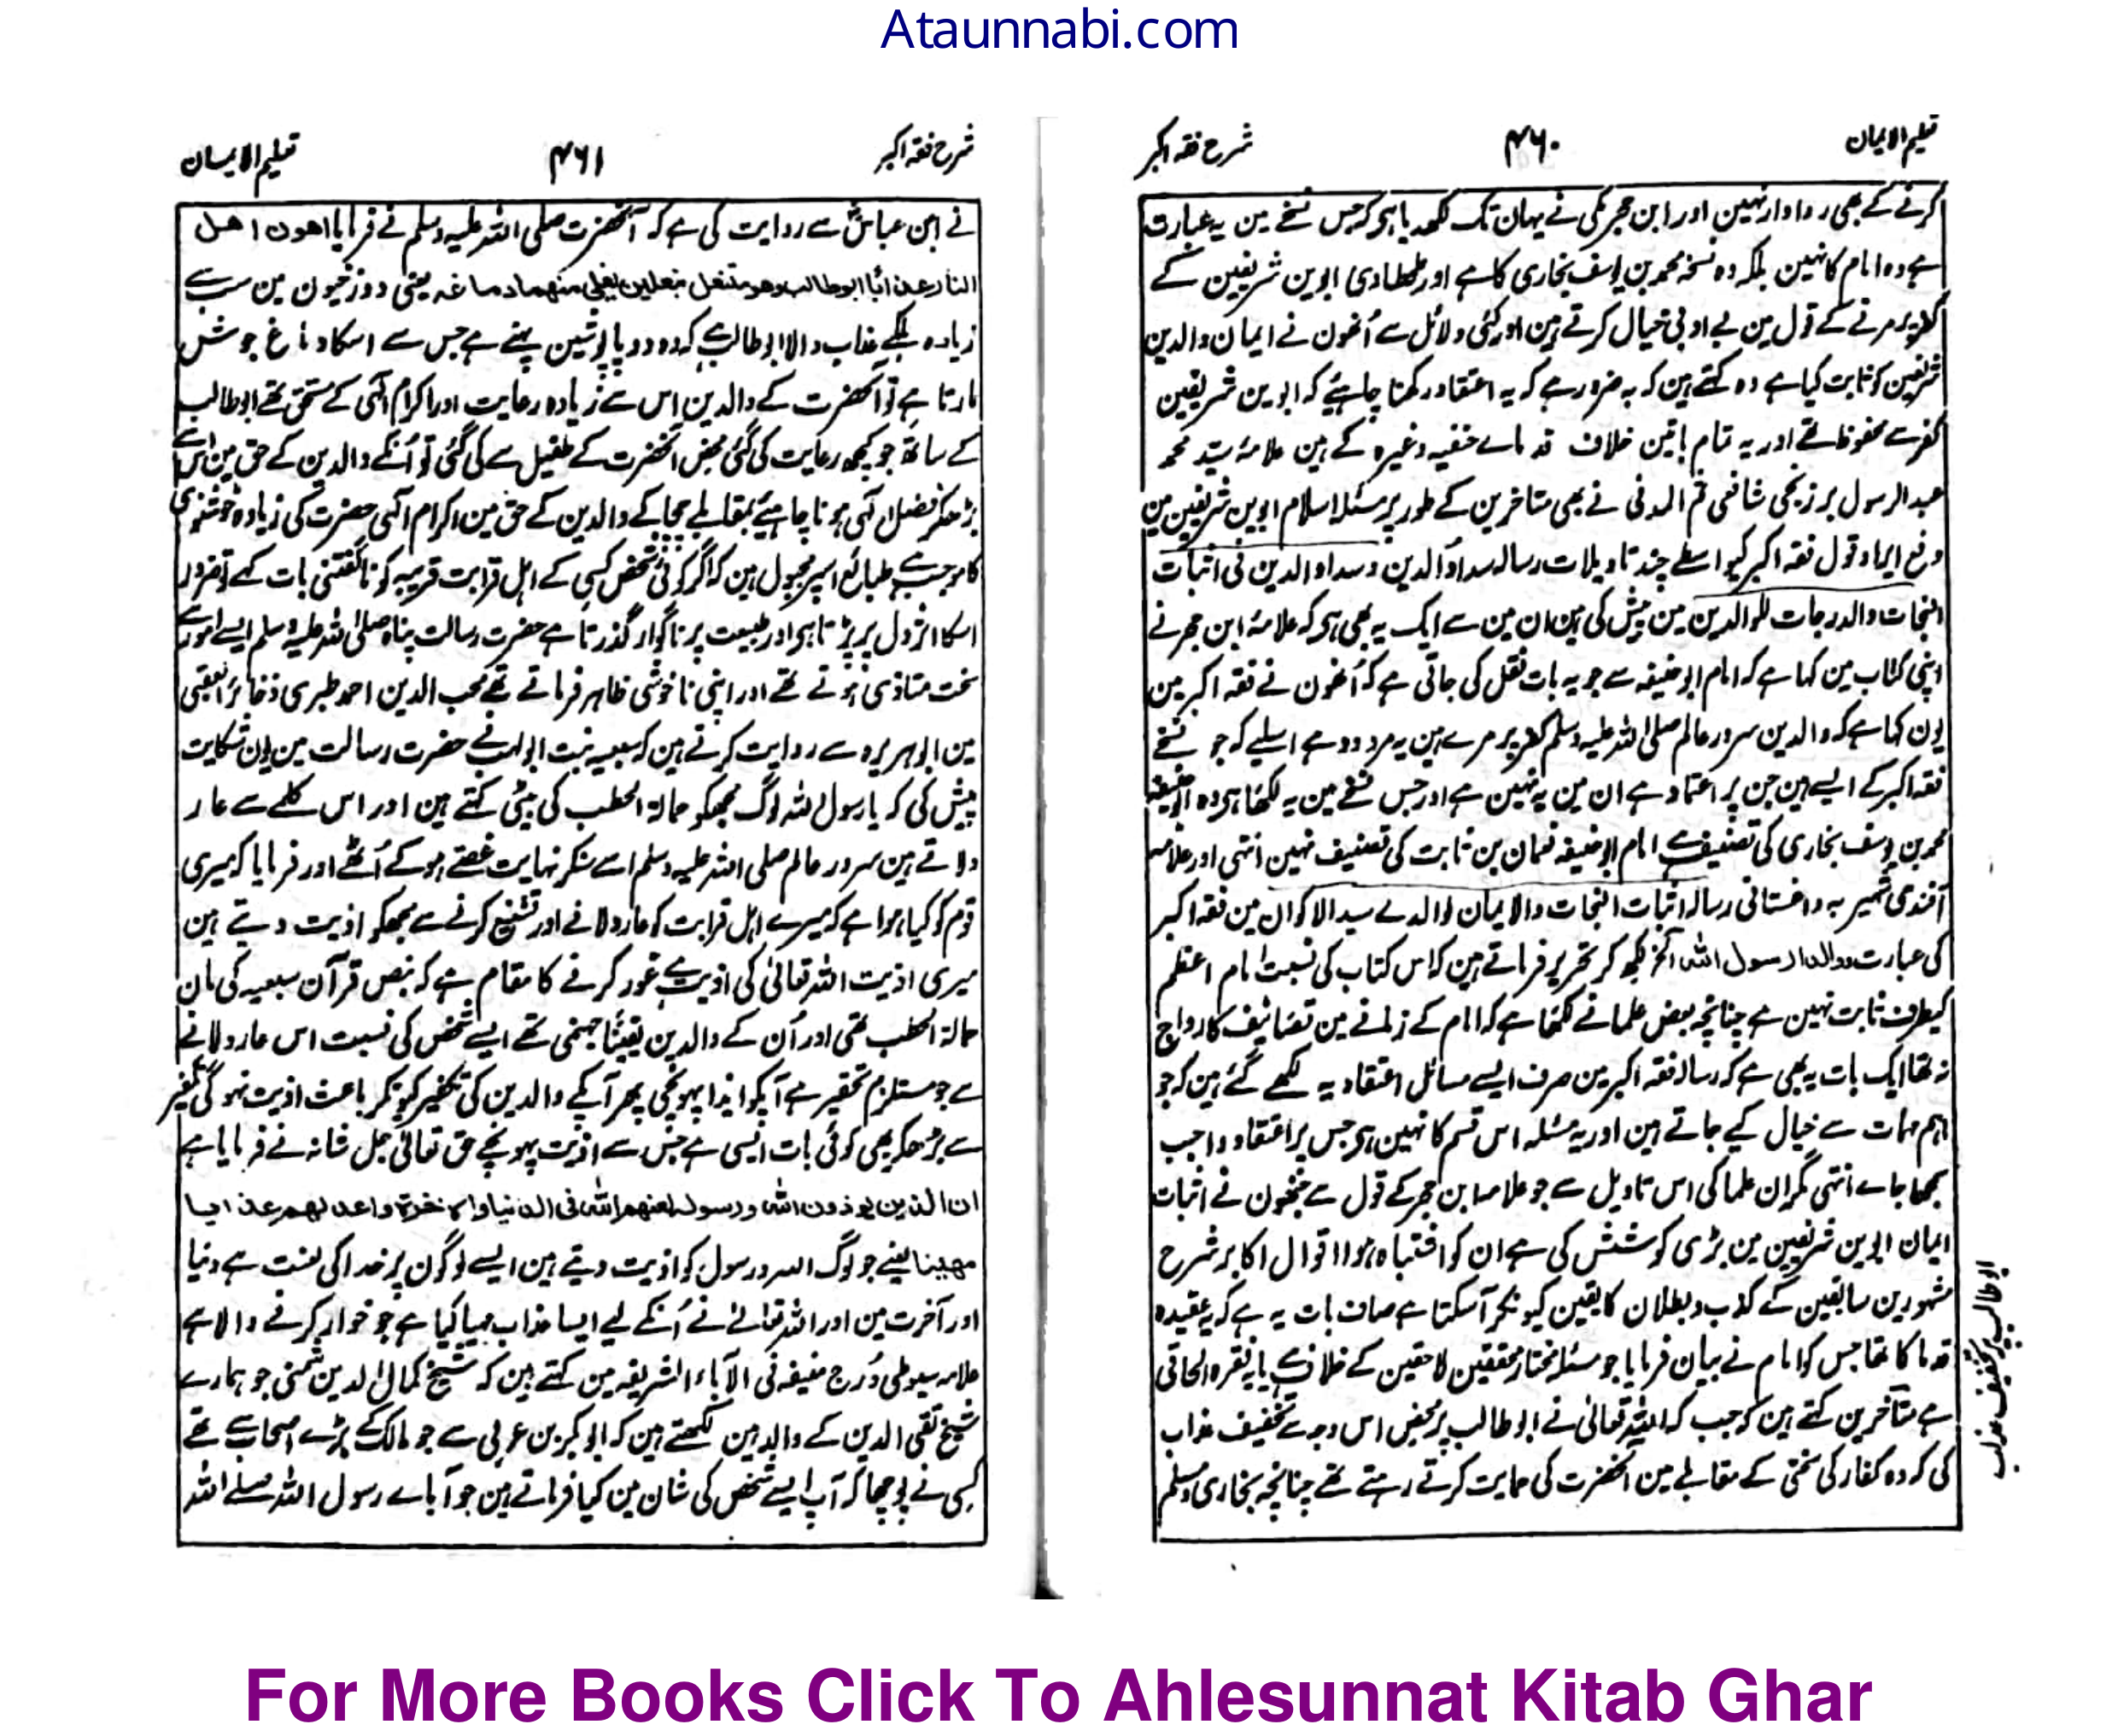 Ataunnabi.com
تعلیم الایمان
۴۶۰
شرح فقہ اکبر
کرنے کے بھی روادار نہین اور ابن حجر مکی نے یہان تک لکھدیا ہی کہ جس نسخے مین یہ عبارت
ہے وہ امام کا نہین بلکہ وہ نسخہ محمد بن یوسف بخاری کا ہے اور طحطاوی ابوین شریفین کے
کفر پر مرنے کے قول مین بے ادبی خیال کرتے ہین اور کئی دلائل سے اُنھون نے ایمان والدین
شریفین کو ثابت کیا ہے وہ کہتے ہین کہ یہ ضرور ہے کہ یہ اعتقاد رکھنا چاہیٔے کہ ابوین شریفین
کفر سے محفوظ تھے اور یہ تمام باتین خلاف قدماے حنفیہ وغیرہ کے ہین علامۂ سید محمد
عبد الرسول برزنجی شافعی ثم المدنی نے بھی متاخرین کے طور پر مسئلۂ اسلام ابوین شریفین مین
دفع ایراد قول فقہ اکبر کیواسطے چند تاویلات رسالہ سداد الدین وسداد الدین فی اثبات
النجات والدرجات للوالدین مین پیش کی ہین ان مین سے ایک یہ بھی ہی کہ علامۂ ابن حجر نے
اپنی کتاب مین کہا ہے کہ امام ابو حنیفہ سے جو یہ بات نقل کی جاتی ہے کہ اُنھون نے فقہ اکبر مین
یون کہا ہے کہ والدین سرور عالم صلی اللہ علیہ وسلم کفر پر مرے ہین یہ مردود ہے اسلیے کہ جو نسخے
فقہ اکبر کے ایسے ہین جن پر اعتماد ہے ان مین یہ نہین ہے اور جس نسخے مین یہ لکھا ہی وہ ابو حنیفہ
محمد بن یوسف بخاری کی تصنیف ہے امام ابو حنیفہ نعمان بن ثابت کی تصنیف نہین انتہی اور علامہ
آفندی شہیر بہ داغستانی رسالہ اثبات النجات والایمان لوالدے سید الاکوان مین فقہ اکبر
کی عبارت ووالدا رسول اللہ الخ لکھ کر تحریر فرماتے ہین کہ اس کتاب کی نسبت امام اعظم
کیطرف ثابت نہین ہے چنانچہ بعض علما نے لکھا ہے کہ امام کے زمانے مین تصانیف کا رواج
نہ تھا ایک بات یہ بھی ہے کہ رسالہ فقہ اکبر مین صرف ایسے مسائل اعتقادیہ لکھے گئے ہین کہ جو
اہم مہمات سے خیال کیے جاتے ہین اور یہ مسئلہ اس قسم کا نہین ہی جس پر اعتقاد واجب
سمجھا جاے انتہی مگر ان علما کی اس تاویل سے جو علامہ ابن حجر کے قول سے جنھون نے اثبات
ایمان ابوین شریفین مین بڑی کوشش کی ہے ان کو اشتباہ ہوا اقوال اکابر شرح
مشہورین سابقین کے کذب و بطلان کا یقین کیونکر آسکتا ہے صاف بات یہ ہے کہ یہ عقیدہ
قدما کا تھا جس کو امام نے بیان فرمایا جو مسئلہ مختار محققین لاحقین کے خلاف ہے یا یہ فقرہ الحاقی
ہے متأخرین کہتے ہین کہ جب کہ اللہ تعالیٰ نے ابو طالب پر محض اس وجہ سے تخفیف عذاب
کی کہ وہ کفار کی سختی کے مقابلے مین آنحضرت کی حمایت کرتے رہتے تھے چنانچہ بخاری ومسلم
ابو طالب پر تخفیف عذاب
شرح فقہ اکبر
۴۶۱
تعلیم الایمان
نے ابن عباسؓ سے روایت کی ہے کہ آنحضرت صلی اللہ علیہ وسلم نے فرمایا اھون اھل
النار عذابا ابو طالب وھو متنعل بنعلین یغلی منھما دماغہ یعنی دوزخیون مین سب سے
زیادہ ہلکے عذاب والا ابو طالب ہے کہ وہ دو پاپوشین پہنے ہے جس سے اسکا دماغ جوش
مارتا ہے تو آنحضرت کے والدین اس سے زیادہ رعایت اور اکرام الٰہی کے مستحق تھے ابو طالب
کے ساتھ جو کچھ رعایت کی گئی محض آنحضرت کے طفیل سے کی گئی تو اُنکے والدین کے حق مین اس سے
بڑھکر فضل الٰہی ہونا چاہیٔے بمقابلے چچا کے والدین کے حق مین اکرام الٰہی حضرت کی زیادہ خوشنودی
کا موجب ہے طبائع اسپر مجبول ہین کہ اگر کوئی شخص کسی کے اہل قرابت قریبہ کو ناگفتنی بات کہے تو ضرور
اسکا اثر دل پر پڑتا ہی اور طبیعت پر ناگوار گذرتا ہے حضرت رسالت پناہ صلی اللہ علیہ وسلم ایسے امور سے
سخت متاذی ہوتے تھے اور اپنی ناخوشی ظاہر فرماتے تھے محب الدین احمد طبری ذخائر العقبی
مین ابو ہریرہ سے روایت کرتے ہین کہ سبیعہ بنت ابو لہب نے حضرت رسالت مین یون شکایت
پیش کی کہ یا رسول اللہ لوگ مجھکو حمالۃ الحطب کی بیٹی کہتے ہین اور اس کلمے سے عار
دلاتے ہین سرور عالم صلی اللہ علیہ وسلم اسے سنکر نہایت غصے ہو کے اُٹھے اور فرمایا کہ میری
قوم کو کیا ہوا ہے کہ میرے اہل قرابت کو عار دلانے اور تشنیع کرنے سے مجھکو اذیت دیتے ہین
میری اذیت اللہ تعالیٰ کی اذیت ہے غور کرنے کا مقام ہے کہ بنص قرآن سبیعہ کی مان
حمالۃ الحطب تھی اور اُن کے والدین یقیناً جہنمی تھے ایسے شخص کی نسبت اس عار دلانے
سے جو مستلزم تحقیر ہے آپکو ایذا پہونچی پھر آپکے والدین کی تکفیر کیونکر باعث اذیت نہو گی تکفیر
سے بڑھکر بھی کوئی بات ایسی ہے جس سے اذیت پہونچے حق تعالیٰ جل شانہ نے فرمایا ہے
ان الذین یوذون اللہ ورسولہ لعنھم اللہ فی الدنیا والاخرۃ واعد لھم عذابا
مھینا یعنے جو لوگ اللہ و رسول کو اذیت دیتے ہین ایسے لوگون پر خدا کی لعنت ہے دنیا
اور آخرت مین اور اللہ تعالےٰ نے اُنکے لیے ایسا عذاب مہیا کیا ہے جو خوار کرنے والا ہے
علامہ سیوطی دُرج منیفہ فی الآباء الشریفہ مین کہتے ہین کہ شیخ کمال الدین شمنی جو ہمارے
شیخ تقی الدین کے والد ہین لکھتے ہین کہ ابو بکر بن عربی سے جو مالک کے بڑے اصحاب سے تھے
کسی نے پوچھا کہ آپ ایسے شخص کی شان مین کیا فرماتے ہین جو آباے رسول اللہ صلے اللہ
For More Books Click To Ahlesunnat Kitab Ghar